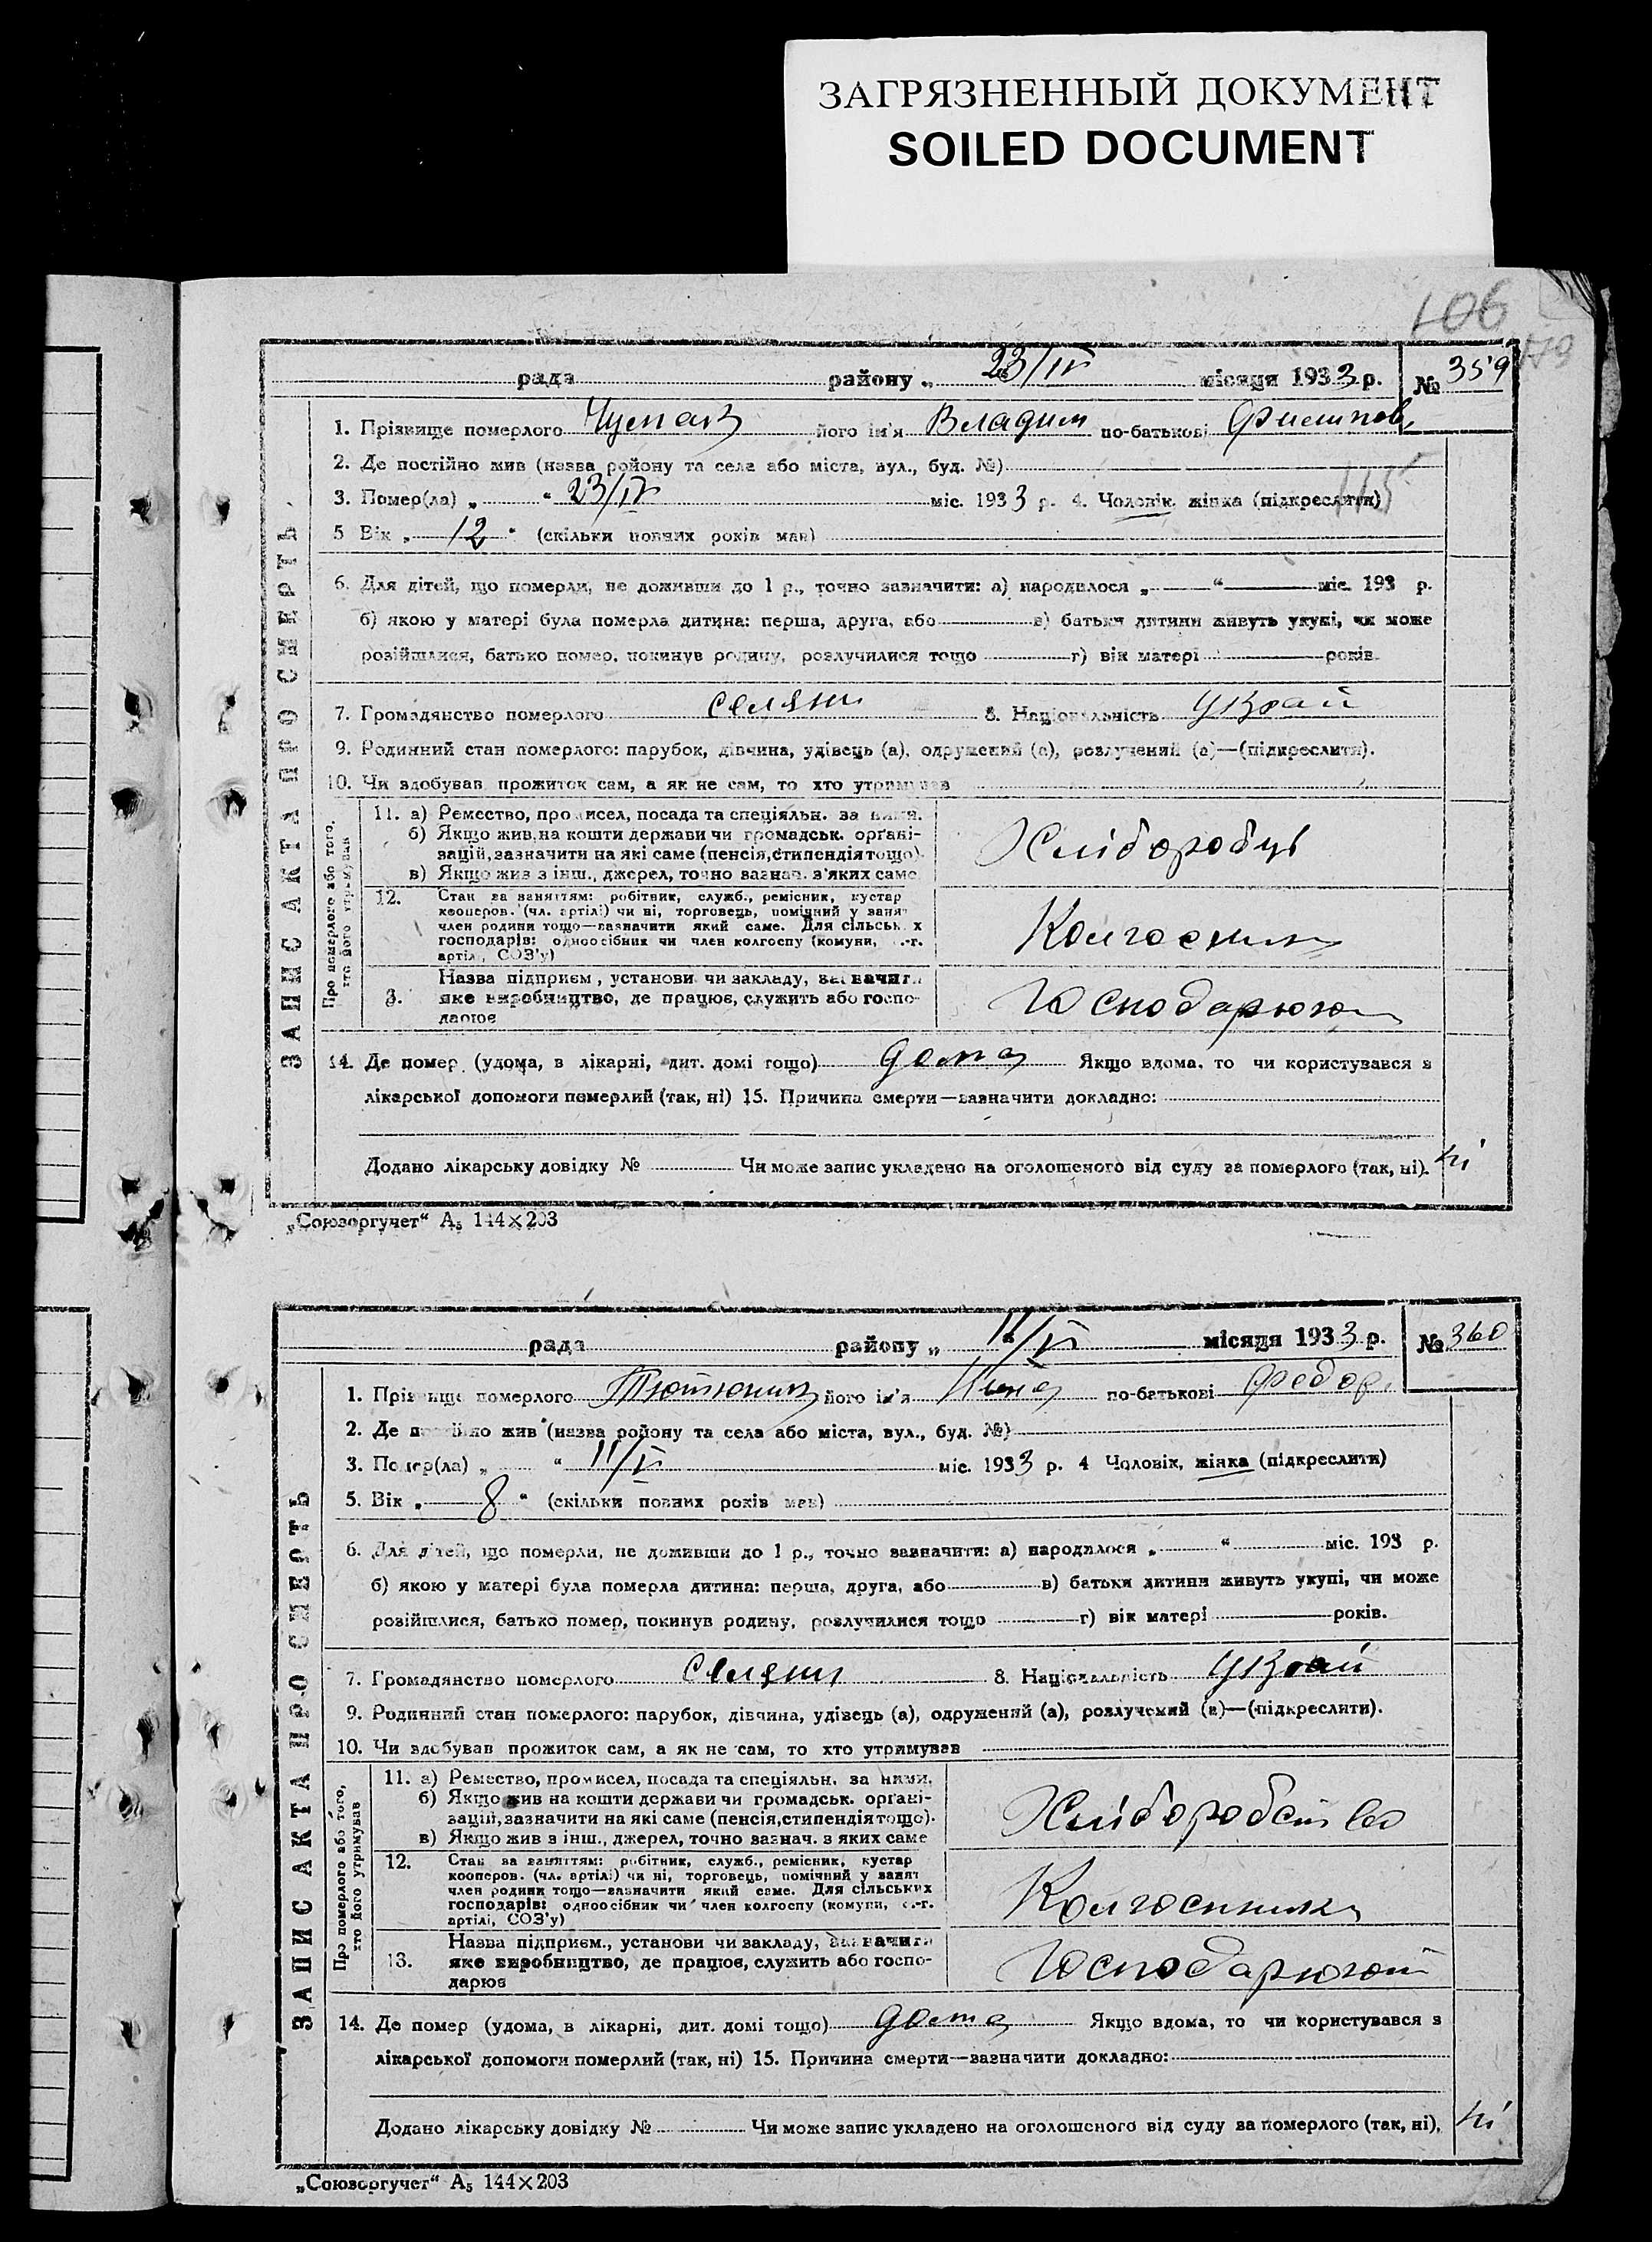 ЗАГРЯЗНЕННЫЙ ДОКУМЕНТ
SOILED DOCUMENT
106
рада району „ 23/IV місяця 1933 р. № 359
1. Прізвище померлого Чумак його ім'я Владим по-батькові Филипов.
2. Де постійно жив (назва району та села або міста, вул., буд. №)
115
3. Помер(ла) „ “ 23/IV міс. 1933 р. 4. Чоловік, жінка (підкреслити)
5 Вік „ 12 “ (скільки повних років мав)
6. Для дітей, що померли, не доживши до 1 р., точно зазначити: а) народилося „ “ міс. 193 р.
б) якою у матері була померла дитина: перша, друга, або в) батьки дитини живуть укупі, чи може
розійшлися, батько помер, покинув родину, розлучилися тощо г) вік матері років.
7. Громадянство померлого селян 8. Національність Украй
9. Родинний стан померлого: парубок, дівчина, удівець (а), одружений (а), розлучений (а)—(підкреслити).
10. Чи здобував прожиток сам, а як не сам, то хто утримував
Про померлого або того, хто його утримував
11. а) Ремество, промисел, посада та спеціяльн. за ними.
б) Якщо жив на кошти держави чи громадськ. орґані-
зацій, зазначити на які саме (пенсія, стипендія тощо).
в) Якщо жив з інш., джерел, точно зазнач. з'яких саме
Хліборобць
12. Стан за заняттям: робітник, служб., ремісник, кустар
кооперов. (чл. артілі) чи ні, торговець, помічний у занят
член родини тощо—зазначити який саме. Для сільськ х
господарів: одноосібник чи член колгоспу (комуни, с.-г.
артілі, СОЗ'у)
Колгосник
3. Назва підприєм, установи чи закладу, зазначити
яке виробництво, де працює, служить або госпо-
дарює
Господарюют
14. Де помер (удома, в лікарні, дит. домі тощо) дома Якщо вдома, то чи користувався з
лікарської допомоги померлий (так, ні) 15. Причина смерти—зазначити докладно:
Додано лікарську довідку № Чи може запис укладено на оголошеного від суду за померлого (так, ні). ні
ЗАПИС АКТА ПРО СМЕРТЬ
„Союзоргучет“ А₅ 144×203
рада району „ 11/V місяця 1933 р. № 360
1. Прізвище померлого Тютюник його ім'я Нина по-батькові Федор.
2. Де постійно жив (назва району та села або міста, вул., буд. №)
3. Помер(ла) „ “ 11/V міс. 1933 р. 4 Чоловік, жінка (підкреслити)
5. Вік „ 8 “ (скільки повних років мав)
6. Для дітей, що померли, не доживши до 1 р., точно зазначити: а) народилося „ “ міс. 193 р.
б) якою у матері була померла дитина: перша, друга, або в) батьки дитини живуть укупі, чи може
розійшлися, батько помер, покинув родину, розлучилися тощо г) вік матері років.
7. Громадянство померлого селян 8. Національність Украй
9. Родинний стан померлого: парубок, дівчина, удівець (а), одружений (а), розлучений (а)—(підкреслити).
10. Чи здобував прожиток сам, а як не сам, то хто утримував
Про померлого або того, хто його утримував
11. а) Ремество, промисел, посада та спеціяльн. за ними.
б) Якщо жив на кошти держави чи громадськ. орґані-
зацій, зазначити на які саме (пенсія, стипендія тощо).
в) Якщо жив з інш., джерел, точно зазнач. з яких саме
Хліборобство
12. Стан за заняттям: робітник, служб., ремісник, кустар
кооперов. (чл. артілі) чи ні, торговець, помічний у занят
член родини тощо—зазначити який саме. Для сільських
господарів: одноосібник чи член колгоспу (комуни, с.-г.
артілі, СОЗ'у)
Колгосника
13. Назва підприєм., установи чи закладу, зазначити
яке виробництво, де працює, служить або госпо-
дарює
Господарюют
14. Де помер (удома, в лікарні, дит. домі тощо) дома Якщо вдома, то чи користувався з
лікарської допомоги померлий (так, ні) 15. Причина смерти—зазначити докладно:
Додано лікарську довідку № Чи може запис укладено на оголошеного від суду за померлого (так, ні). ні
ЗАПИС АКТА ПРО СМЕРТЬ
„Союзоргучет“ А₅ 144×203